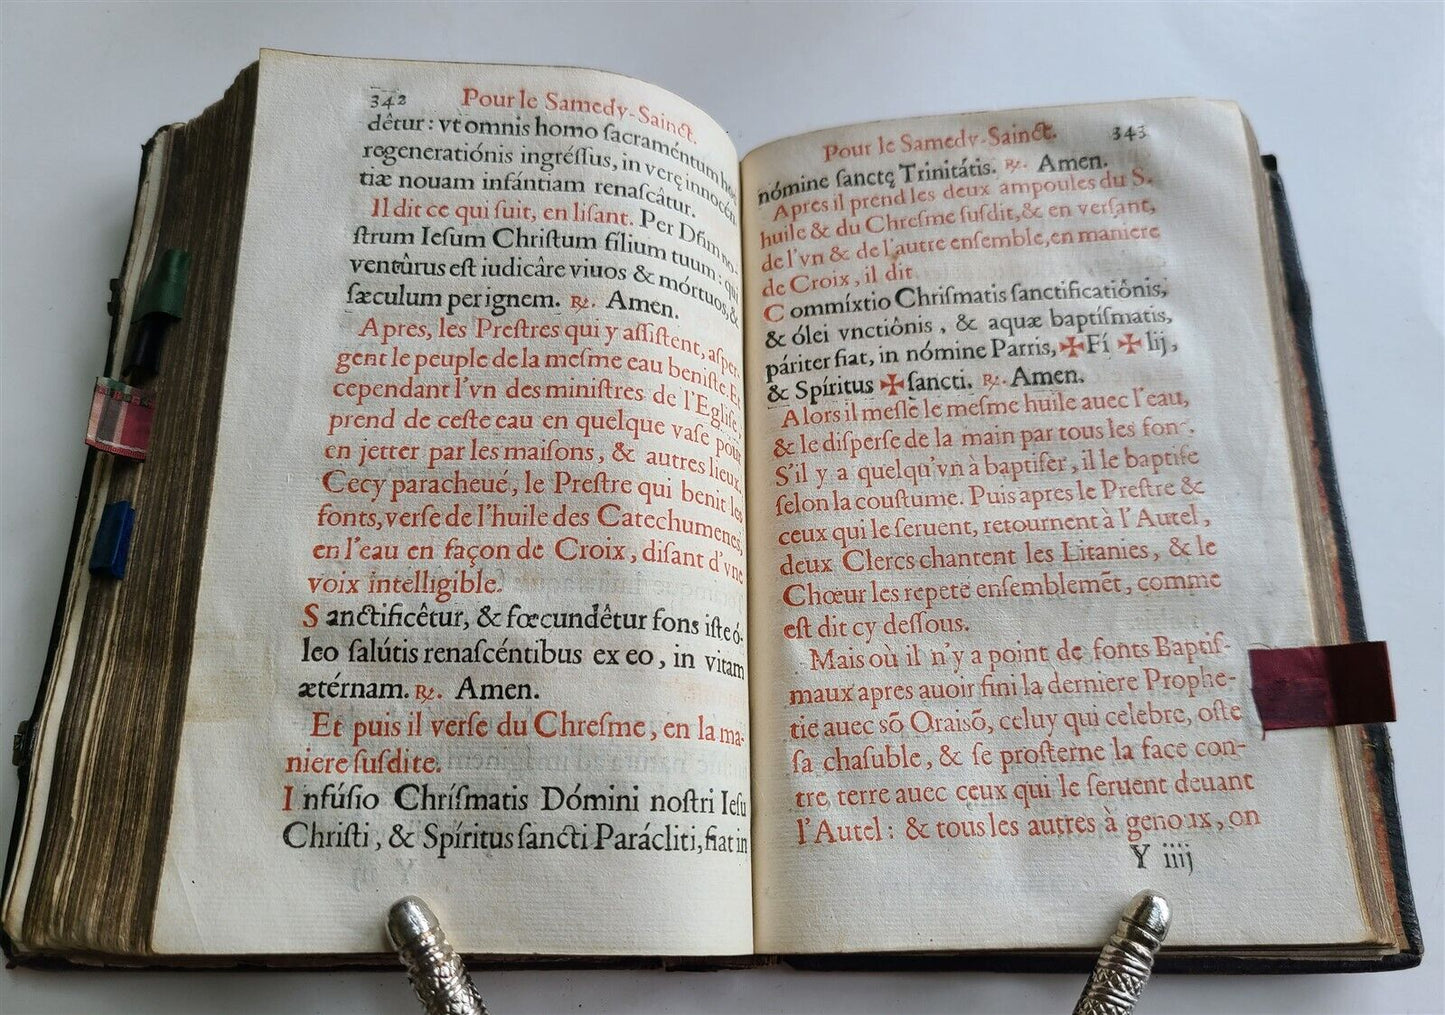 342 Pour le Samedy-Sainct.
dêtur: vt omnis homo ſacraméntum hoc
regeneratiónis ingréſſus, in verę innocén
tiæ nouam infántiam renaſcâtur.
Il dit ce qui ſuit, en liſant. Per Dñm no-
ſtrum Ieſum Chriſtum fílium tuum: qui
ventûrus eſt iudicâre viuos & mórtuos, &
ſæculum per ignem. ℟. Amen.
Apres, les Preſtres qui y aſſiſtent, aſper-
gent le peuple de la meſme eau beniſte. Et
cependant l'vn des miniſtres de l'Egliſe,
prend de ceſte eau en quelque vaſe pour
en jetter par les maiſons, & autres lieux.
Cecy paracheué, le Preſtre qui benit les
fonts, verſe de l'huile des Catechumenes,
en l'eau en façon de Croix, diſant d'vne
voix intelligible.
Sanctificêtur, & fœcundêtur fons iſte ó-
leo ſalútis renaſcéntibus ex eo, in vitam
ætérnam. ℟. Amen.
Et puis il verſe du Chreſme, en la ma-
niere ſuſdite.
Infúſio Chríſmatis Dómini noſtri Ieſu
Chriſti, & Spíritus ſancti Parácliti, fiat in
Pour le Samedy-Sainct. 343
nómine ſanctę Trinitátis. ℟. Amen.
Apres il prend les deux ampoules du S.
huile & du Chreſme ſuſdit, & en verſant,
de l'vn & de l'autre enſemble, en maniere
de Croix, il dit
Commíxtio Chriſmatis ſanctificatiônis,
& ólei vnctiônis, & aquæ baptíſmatis,
páriter fiat, in nómine Parris, ✠ Fí ✠ lij,
& Spíritus ✠ ſancti. ℟. Amen.
Alors il meſle le meſme huile auec l'eau,
& le diſperſe de la main par tous les fons.
S'il y a quelqu'vn à baptiſer, il le baptiſe
ſelon la couſtume. Puis apres le Preſtre &
ceux qui le ſeruent, retournent à l'Autel,
deux Clercs chantent les Litanies, & le
Chœur les repete enſemblemẽt, comme
eſt dit cy deſſous.
Mais où il n'y a point de fonts Baptiſ-
maux apres auoir fini la derniere Prophe-
tie auec sõ Oraiſõ, celuy qui celebre, oſte
ſa chaſuble, & ſe proſterne la face con-
tre terre auec ceux qui le ſeruent deuant
l'Autel: & tous les autres à genoux, on
Y iiij